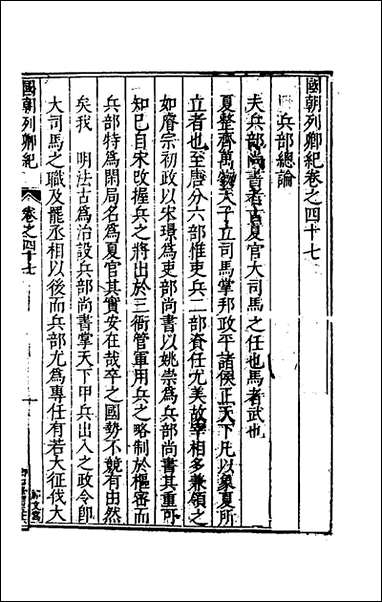 國朝列卿紀卷之四十七
兵部總論
夫兵部尚書者古夏官大司馬之任也馬者武也
夏整齊萬物天子立司馬掌邦政平諸侯正天下凡以象夏所
立者也至唐分六部惟吏兵二部資任尤美故宰相多兼領之
如睿宗初政以宋璟為吏部尚書以姚崇為兵部尚書其重可
知已自宋改握兵之將出於三衙管軍用兵之略制於樞密而
兵部特為閑局名為夏官其實安在哉卒之國勢不競有由然
矣我 明法古為治設兵部尚書掌天下甲兵出入之政令即
大司馬之職及罷丞相以後而兵部尤為專任有若大征伐大
國朝列卿紀
卷之四十七